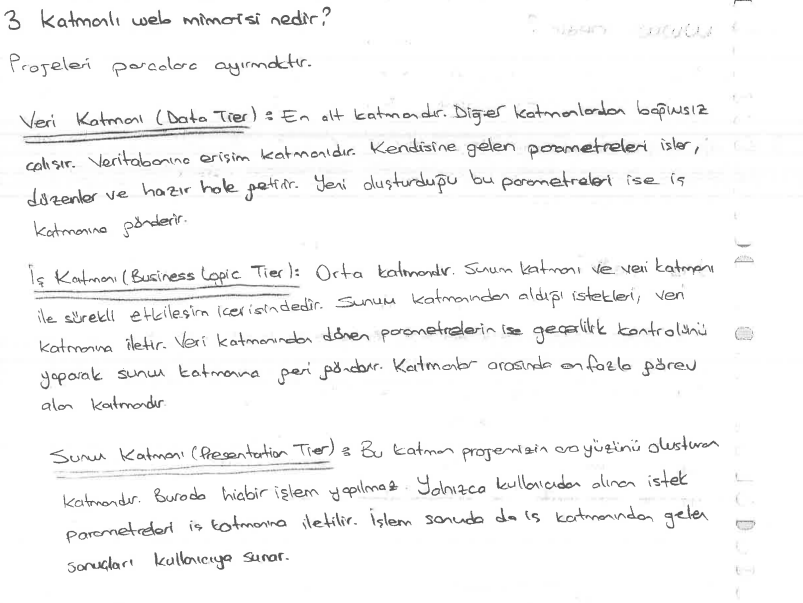 3 Katmanlı web mimarisi nedir?
Projeleri parçalara ayırmaktır.
Veri Katmanı (Data Tier) : En alt katmandır. Diğer katmanlardan bağımsız
çalışır. Veritabanına erişim katmanıdır. Kendisine gelen parametreleri işler,
düzenler ve hazır hale getirir. Yeni oluşturduğu bu parametreleri ise iş
katmanına gönderir.
İş Katmanı (Business Logic Tier): Orta katmandır. Sunum katmanı ve veri katmanı
ile sürekli etkileşim içerisindedir. Sunum katmanından aldığı istekleri, veri
katmanına iletir. Veri katmanından dönen parametrelerin ise geçerlilik kontrolünü
yaparak sunum katmanına geri gönderir. Katmanlar arasında en fazla görev
alan katmandır.
Sunum Katmanı (Presentation Tier) : Bu katman projemizin ara yüzünü oluşturan
katmandır. Burada hiçbir işlem yapılmaz. Yalnızca kullanıcıdan alınan istek
parametreleri iş katmanına iletilir. İşlem sonuda da iş katmanından gelen
sonuçları kullanıcıya sunar.